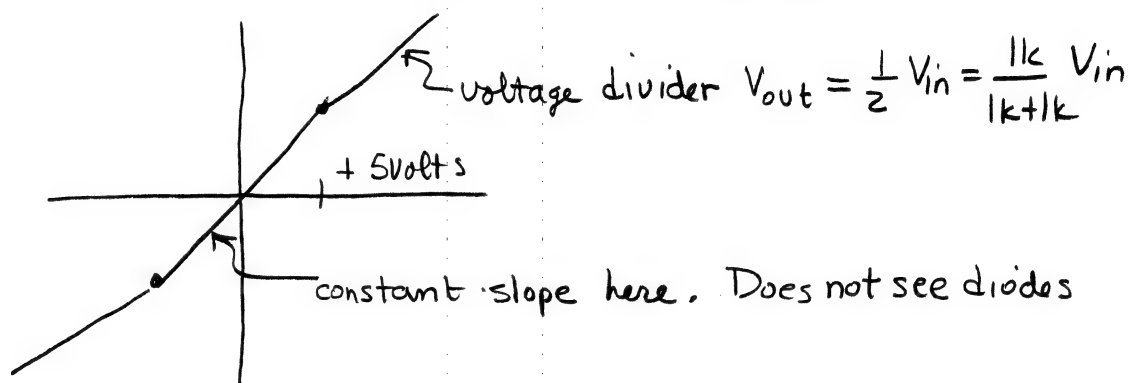 voltage divider Vout = 1/2 Vin = 1k/1k+1k Vin
+ 5volts
constant slope here. Does not see diodes